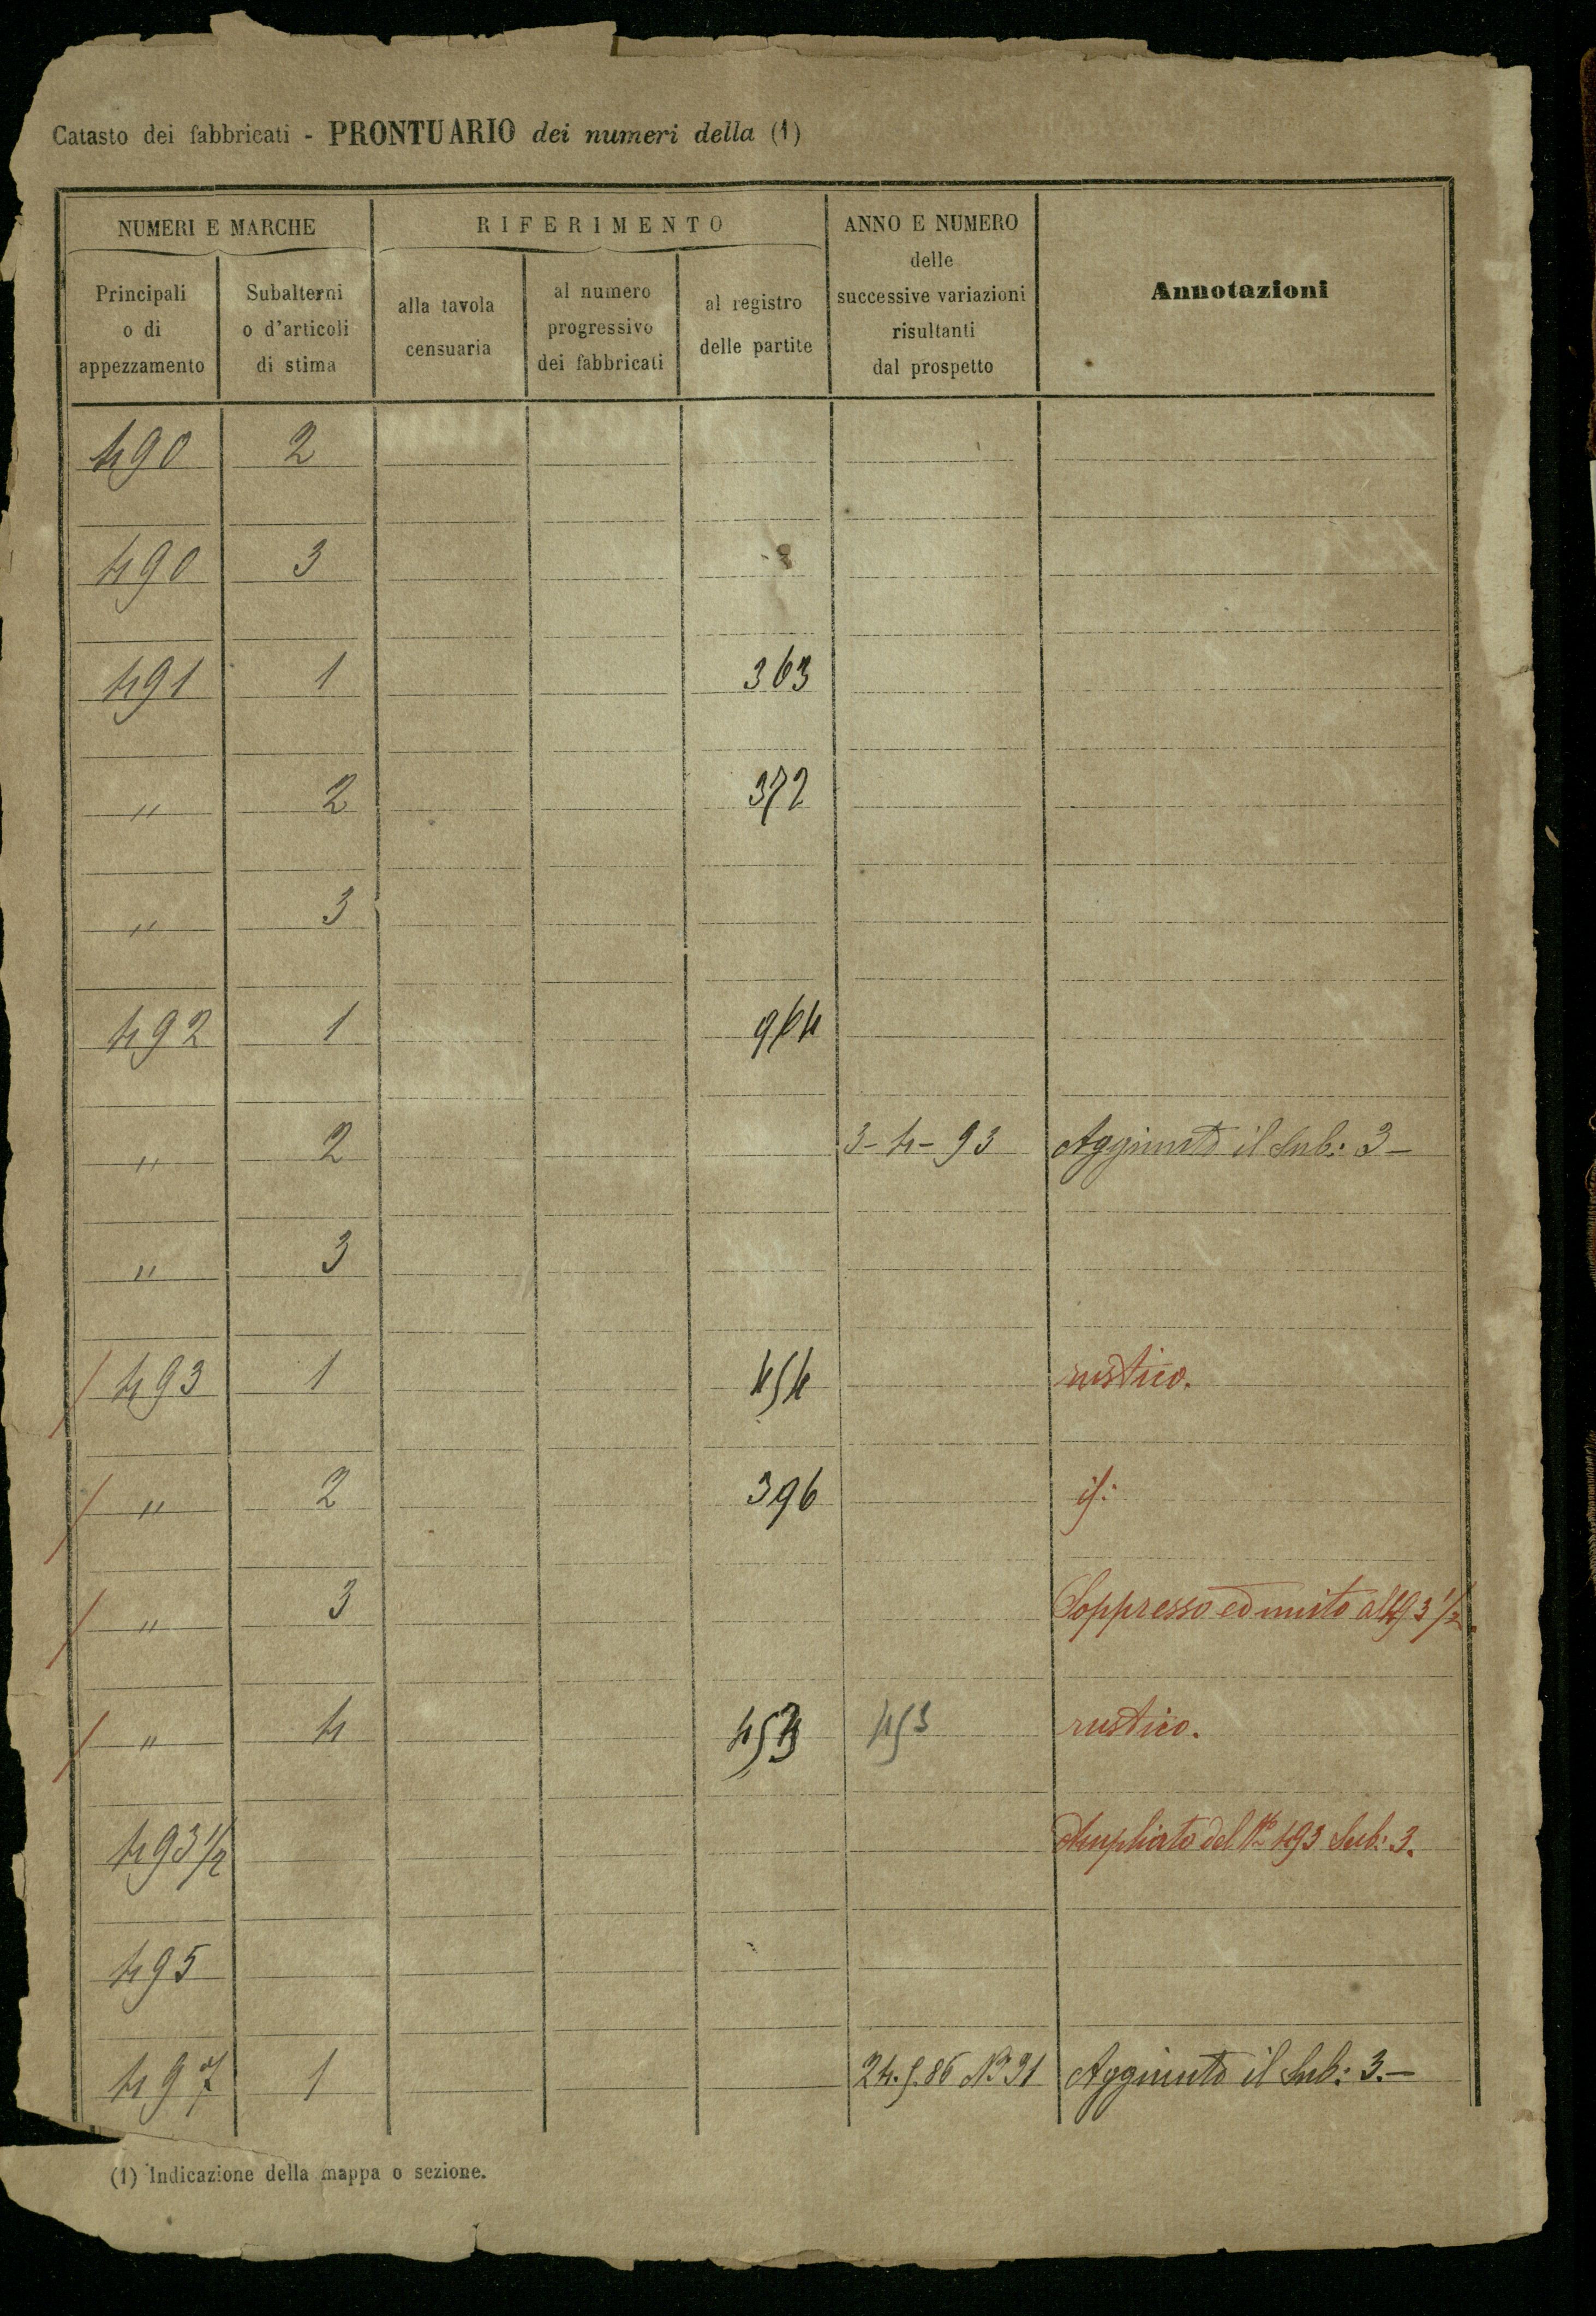 Catasto dei fabbricati - PRONTUARIO dei numeri della (1)
NUMERI E MARCHE
RIFERIMENTO
ANNO E NUMERO
delle
successive variazioni
risultanti
dal prospetto
Annotazioni
Principali
o di
appezzamento
Subalterni
o d'articoli
di stima
alla tavola
censuaria
al numero
progressivo
dei fabbricati
al registro
delle partite
490 2
490 3
491 1 363
" 2 372
" 3
492 1 964
" 2 3-4-93 Aggiunto il Sub: 3-
" 3
493 1 454 rustico.
" 2 396 id:
" 3 Soppresso ed unito al 493 1/2.
" 4 453 rustico.
493 1/2 Ampliato del No 493 Sub: 3.
495
497 1 24.5.86 No 31 Aggiunto il Sub: 3.-
(1) Indicazione della mappa o sezione.